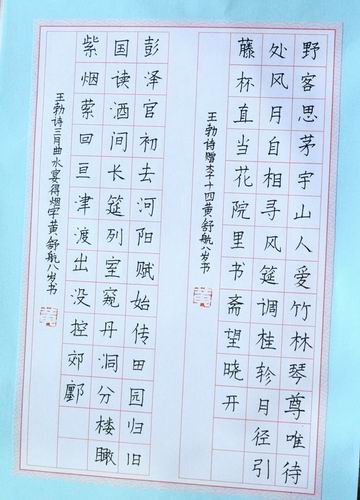 野客思茅宇山人爱竹林琴尊唯待
处风月自相寻风筵调桂轸月径引
藤杯直当花院里书斋望晓开
王勃诗赠李十四黄舒航八岁书
彭泽官初去河阳赋始传田园归旧
国读酒间长筵列室窥丹洞分楼瞰
紫烟萦回亘津渡出没控郊鄽
王勃诗三月曲水宴得烟字黄舒航八岁书